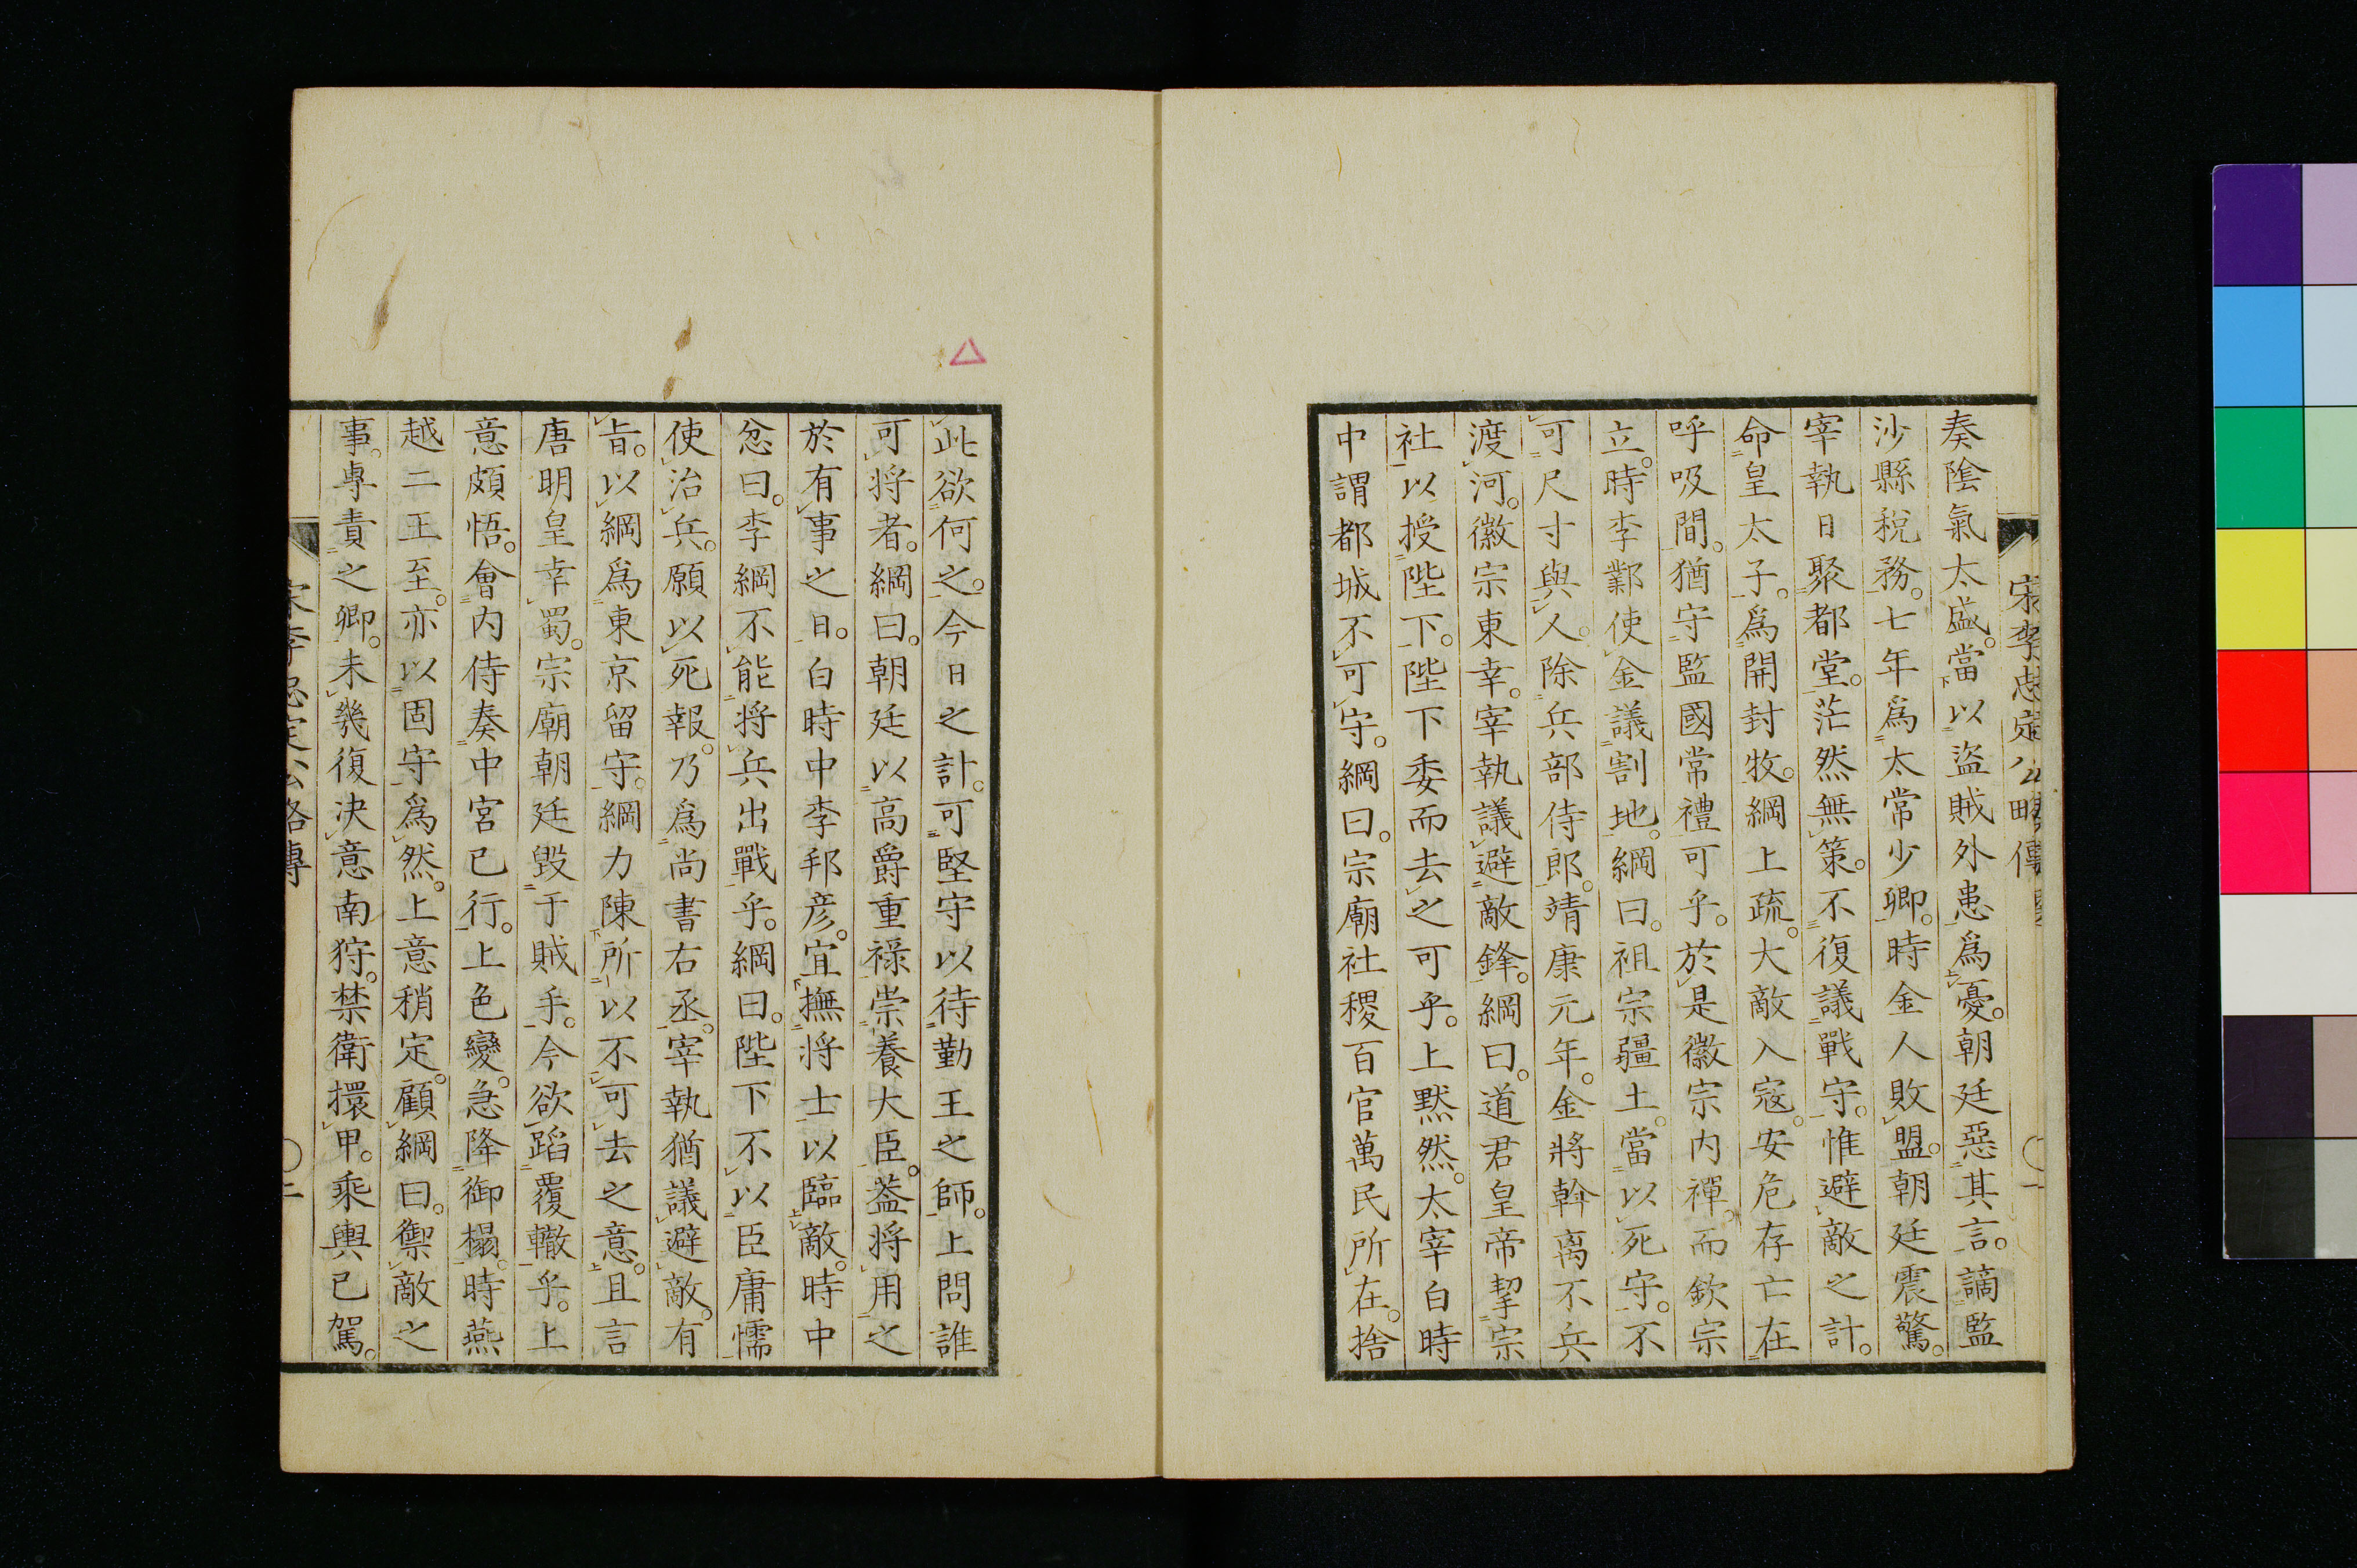 宋李忠定公略傳
一
奏陰氣太盛。當以盜賊外患爲憂。朝廷惡其言。謫監
沙縣稅務。七年爲太常少卿。時金人敗盟。朝廷震驚。
宰執日聚都堂。茫然無策。不復議戰守。惟避敵之計。
命皇太子。爲開封牧。綱上疏。大敵入寇。安危存亡在
呼吸間。猶守監國常禮可乎。於是徽宗内禪。而欽宗
立。時李鄴使金議割地。綱曰。祖宗疆土。當以死守。不
可尺寸與人。除兵部侍郎。靖康元年。金將斡离不兵
渡河。徽宗東幸。宰執議避敵鋒。綱曰。道君皇帝挈宗
社以授陛下。陛下委而去之可乎。上默然。太宰白時
中謂都城不可守。綱曰。宗廟社稷百官萬民所在。捨
此欲何之。今日之計。可堅守以待勤王之師。上問誰
可将者。綱曰。朝廷以高爵重祿崇養大臣。葢将用之
於有事之日。白時中李邦彦。宜撫将士以臨敵。時中
忿曰。李綱不能将兵出戰乎。綱曰。陛下不以臣庸懦
使治兵。願以死報。乃爲尚書右丞。宰執猶議避敵。有
旨。以綱爲東京留守。綱力陳所以不可去之意。且言
唐明皇幸蜀。宗廟朝廷毀于賊手。今欲蹈覆轍乎。上
意頗悟。會内侍奏中宮已行。上色變。急降御榻。時燕
越二王至。亦以固守爲然。上意稍定。顧綱曰。禦敵之
事。專責之卿。未幾復決意南狩。禁衛擐甲。乘輿已駕。
宋李忠定公略傳
二